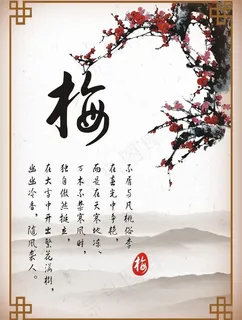 梅
不屑与凡桃俗李
在春光中争艳,
而是在天寒地冻、
万木不禁寒风时,
独自傲然挺立,
在大雪中开出繁花满树,
幽幽冷香,随风袭人。
梅